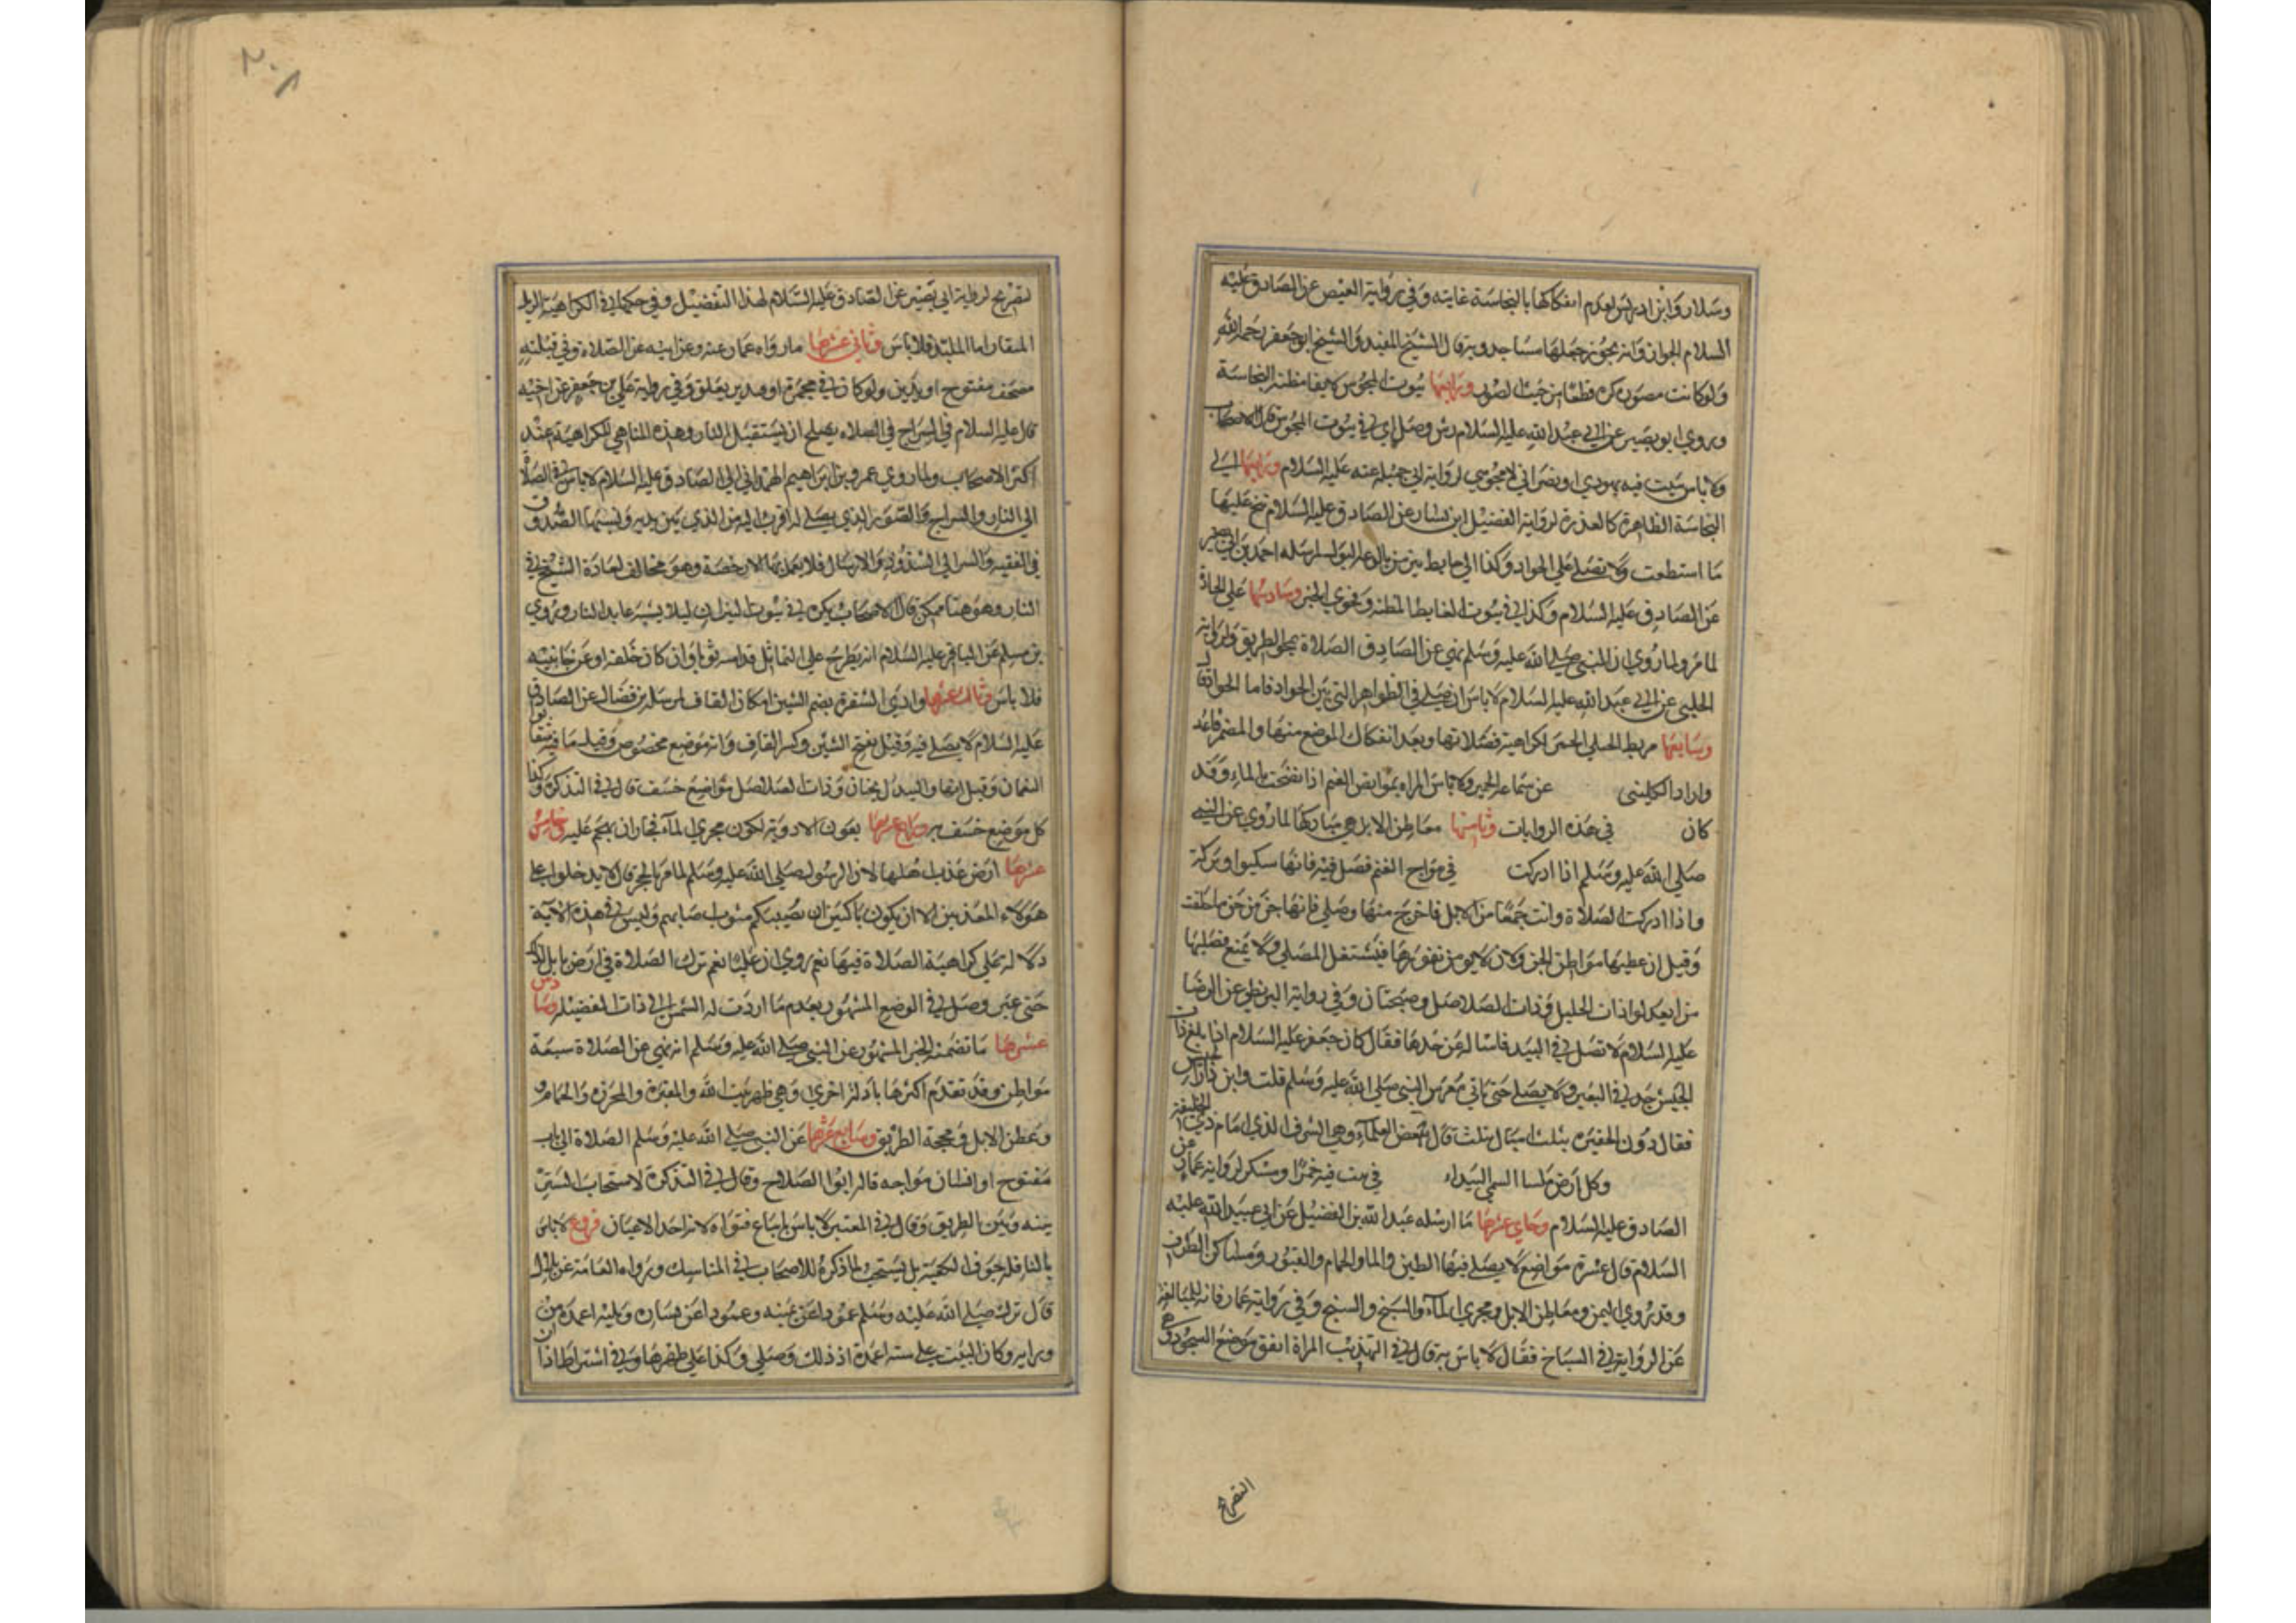 وسلار وابن ادريس لعدم انفكاكها بالنجاسة غايته وفي رواية العيص عن الصادق عليه
السلام الجواز وانه يجوز جعلها مساجد وبه قال الشيخ المفيد والشيخ ابو جعفر رحمه الله
ولو كانت مصورة كره قطعا من حيث الصور ورابعها بيوت المجوس مظنه النجاسة
وروي ابو بصير عن ابي عبد الله عليه السلام رش وصل اي في بيوت المجوس قال الاصحاب
ولا باس ببيت فيه يهودي او نصراني لا مجوسي لرواية ابي جميله عنه عليه السلام الي
النجاسة الظاهرة كالعذرة لرواية الفضيل ابن يسار عن الصادق عليه السلام تنح عليها
ما استطعت ولا تصلي علي الجواد وكذا الي حايط ينز من بالوعه البول ارسله احمد بن ابي نصر
عن الصادق عليه السلام وكذا في بيوت الغايط المظنه وفحوي الخبر وسادسها علي الجادة
لما مر ولما روي ان النبي صلي الله عليه وسلم نهي عن الصادق الصلاة بمحجة الطريق ولرواية
الحلبي عن ابي عبد الله عليه السلام لا باس ان يصلي في الظواهر التي بين الجواد فاما الجواد فلا
وسابعها مربط الخيل الحمر لكراهية فضلاتها وبعد انفكاك الموضع منها
وزاد الكليني عن سماعه الحمير ولا باس بمرابض الغنم اذا نضحت بالماء وقد
كان في هذه الروايات وثامنها معاطن الابل هي مباركها لما روي عن النبي
صلي الله عليه وسلم اذا ادركت في مراح الغنم فصل فيه فانها سكينة وبركة
واذا ادركت الصلاة وانت جمعا من الابل فاخرج منها وصلي فانها جن من جن ما خلقت
وقيل ان عطنها مواطن الجن ولانه لا يومن نفورها فيشتغل المصلي ولا يمنع فضلها
ذات الصلاصل وضجنان وفي رواية البزنطي عن الرضا
عليه السلام لا تصل في البيداء فاسا له عن حدها فقال كان جعفر عليه السلام اذا بلغ ذات
الجيش جد في السير ولا يصلي حتي ياتي معرس النبي صلي الله عليه وسلم قلت واين ذات الجيش
فقال دون الحفيرة بثلث اميال بثلث قال بعض العلماء وهي الشرف الذي امام ذي الحليفة
وكل ارض ملسا السمي البيداء في بيت فيه خمرا ومسكر لرواية عمار عن
الصادق عليه السلام وحادي عشرها ما ارسله عبد الله بن الفضيل عن ابي عبيد الله عليه
السلام قال عشرة مواضع لا يصلي فيها الطين والما والحمام والقبور ومسان الطرف
وقد روي اليمن ومعاطن الابل ومجري الماء والسبخ والسبخ وفي رواية عمار فانه
عن الرواية في السباخ فقال لا باس به قال في التهذيب المراة اتفق موضع السجود
التصريح
٢٠٨
لتصريح لرواية ابي بصير عن الصادق عليه السلام لهذا التفضيل وفي حكمها في الكراهية
اما الملبد فلا باس وثاني عشرها ما رواه عمار عنه وعن ابيه عن الصلاة وفي قبلته
مصحف مفتوح او يدين ولو كان في مجمرة او قنديل معلق وفي رواية علي بن جعفر عن اخيه
قال عليه السلام في السراج في الصلاء يصلح ان يستقبل النار وهذه المناهي للكراهية عند
اكثر الاصحاب ولما روي عمرو بن ابراهيم الهمداني الي الصادق عليه السلام لا باس في الصلاة
الي النار والسراج والصور الذي يصلي له اقرب اليه من الذي بين يديه ونسبها الصدوق
في الفقيه والسرا الي الشذوذ والارسال فلا يعمل بها الا رخصة وهو مخالف لعادة الشيخ في
النار وهو هنا ممكن قال الاصحاب يكره في بيوت النيران ليلا يشبه عابد النار وروي
بن مسلم عن الباقر عليه السلام انه يطرح علي التماثل قدامه ثوبا وان كان خلفه او عن جانبيه
فلا باس وثالث عشرها وادي الشقرة بضم الشين اسكان القاف ارسله بن فضال عن الصادق
عليه السلام لا يصلي فيه وقيل بفتح الشين وكسر القاف وانه موضع مخصوص وقيل ما فيه شقايق
النعمان وقيل انها والبيداء ضجنان وذات الصلاصل مواضع خسف قال في التذكرة وكذا
كل موضع خسف به ورابع عشرها بطون الاودية لكون مجري الماء فجاز ان يهجم عليه وخامس
عشرها ارض عذب اهلها لان الرسول صلي الله عليه وسلم لما مر بالحجر قال لا يدخلوا علي
هولاء المعذبين الا ان يكون باكين ان يصيبكم مثل ما اصابهم وليس في هذه الاية
دلالة علي كراهية الصلاة فيها نعم روي ان عليا نعم ترك الصلاة في ارض بابل لذلك
حتي عبر وصل في الوضع المشهور بعدم ما اردت له الشمس الي ذات الفضيله وسادس
عشرها ما تضمنه الخبر المشهور عن النبي صلي الله عليه وسلم انه نهي عن الصلاة سبعة
مواطن وقد تقدم اكثرها بادلة اخري وهي ظهر بيت الله والمقبرة والمجزرة والحمام
وعطن الابل في محجة الطريق وسابع عشرها عن النبي صلي الله عليه وسلم الصلاة الي باب
مفتوح او انسان مواجه قاله ابوا الصلاح وقال في التذكرة لاستحباب الستر
بينه وبين الطريق وقال في المعتبر لا باس باتباع فتواه لانه احد الاعيان فروع لا باس
بالنافلة جوف الكعبة بل يستحب لما ذكره للاصحاب في المناسك ورواه العامة عن بلال
قال ترك صلي الله عليه وسلم عمودا عن يمينه وعمودا عن يساره وثلثة اعمدة من
ورايه وكان البيت علي ستة اعمدة اذ ذلك وصلي وكذا علي ظهرها وفي اشتراط اذان